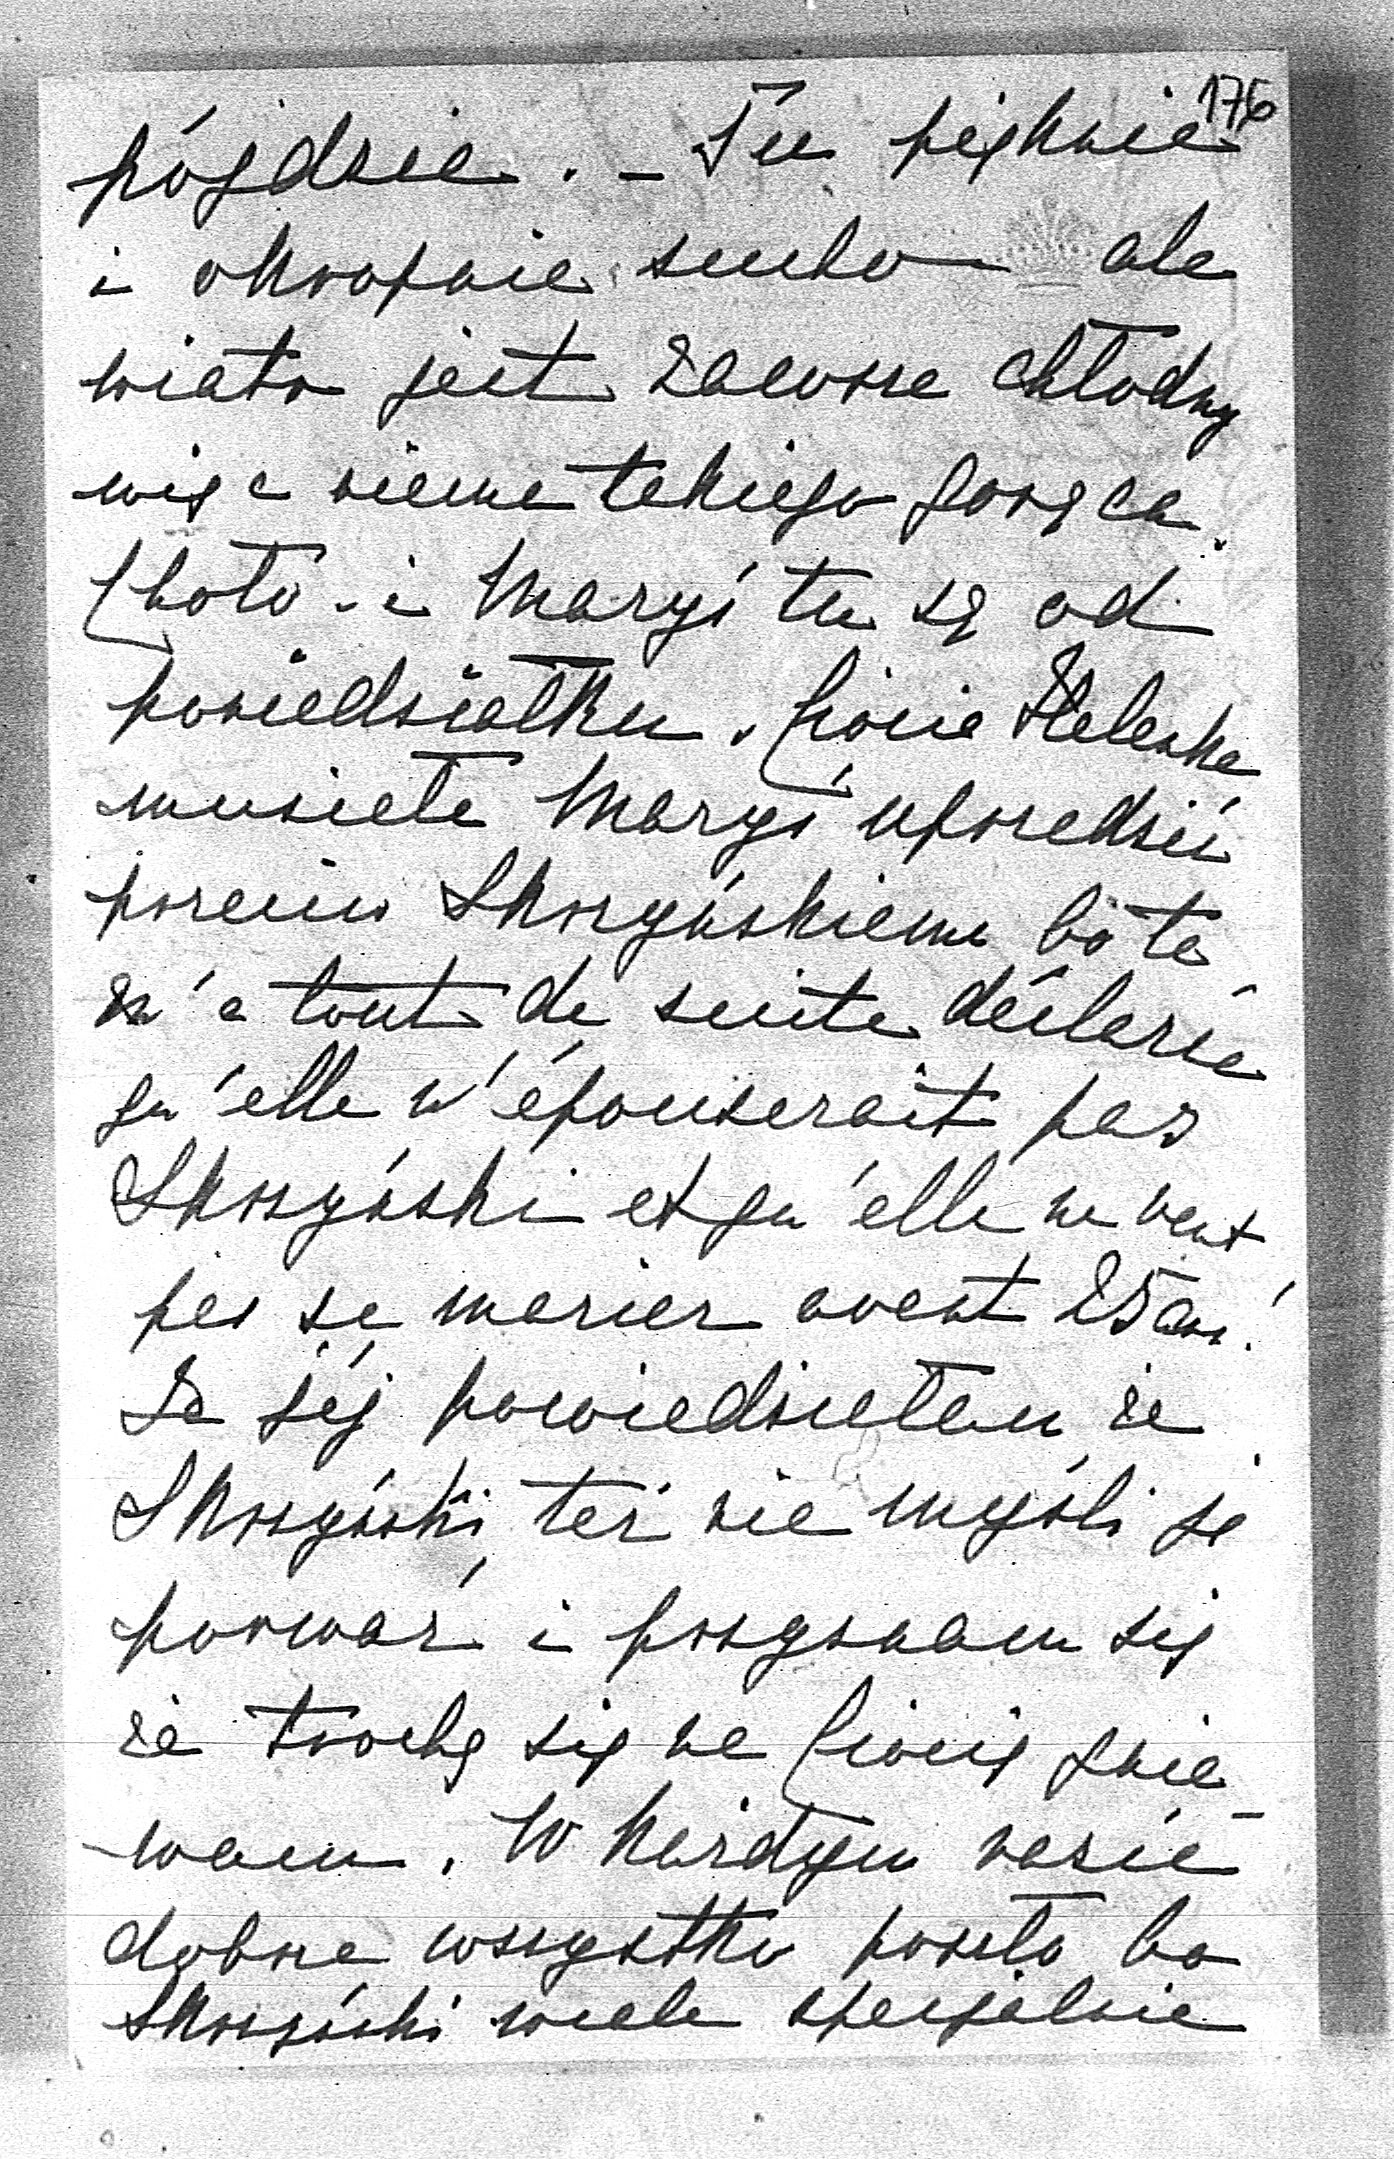 176
pójdzie. – Tu pięknie
i okropnie sucho – ale
wiatr jest zawsze chłodny
więc niema takiego gorąca.
i Maryś tu są od
poniedziałku. Ciocia Helenka
musiała Maryś uprzedzić
przeciw Skrzyńskiemu bo ta
m'a tout de suite déclaré
qu'elle n'épouserait pas
Skrzyński et qu'elle ne veut
pas se marier avant 25 ans!
Ja jéj powiedziałam że
Skrzyński też nie myśli ją
porwać i przyznam się
że trochę się na Ciocię gnie
wam. W każdym razie
dobrze wszystko poszło bo
Skrzyński wcale specjalnie